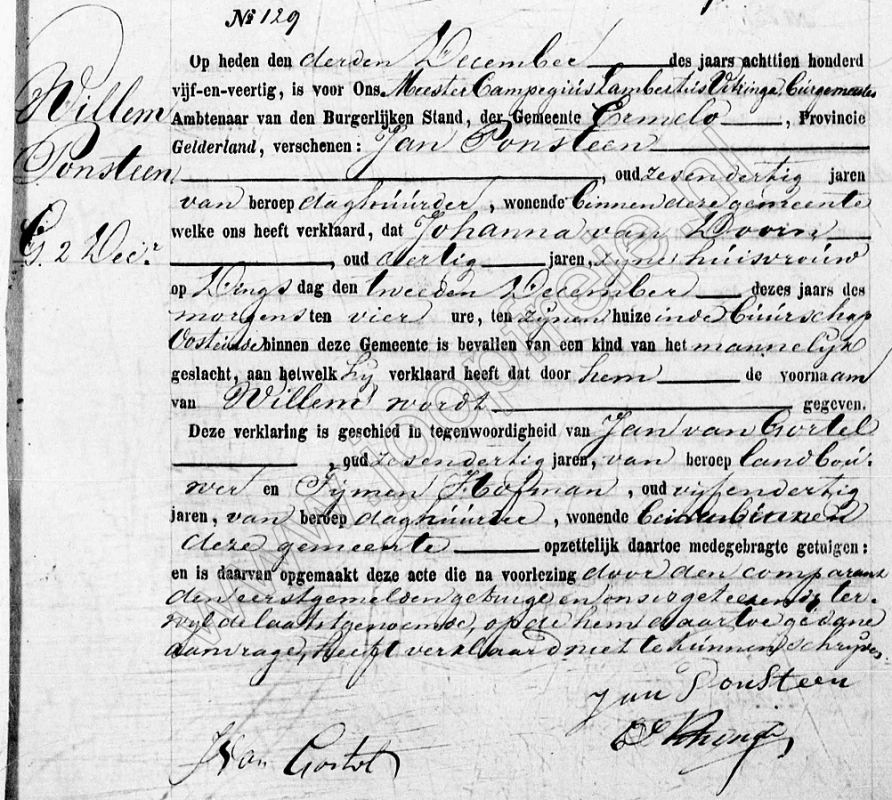 No 129
Willem
Ponsteen
G. 2 Decr
Op heden den derden December des jaars achttien honderd
vijf-en-veertig, is voor Ons Meester Campegius Lambertus Vitringa, Burgemeester
Ambtenaar van den Burgerlijken Stand, der Gemeente Ermelo, Provincie
Gelderland, verschenen: Jan Ponsteen
, oud zesendertig jaren
van beroep daghuurder, wonende binnen deze gemeente
welke ons heeft verklaard, dat Johanna van Doorn
, oud dertig jaren, zijne huisvrouw
op Dings dag den tweeden December dezes jaars des
morgens ten vier ure, ten zijnen huize in de buurschap
binnen deze Gemeente is bevallen van een kind van het mannelijk
geslacht, aan hetwelk hij verklaard heeft dat door hem de voornaam
van Willem wordt gegeven.
Deze verklaring is geschied in tegenwoordigheid van Jan van Gortel
, oud zesendertig jaren, van beroep landbou-
wer en Tijmen Hofman, oud vijfendertig
jaren, van beroep daghuurder, wonende binnen
deze gemeente opzettelijk daartoe medegebragte getuigen:
en is daarvan opgemaakt deze acte die na voorlezing door den comparant
den eerstgemelden getuige en ons is geteekend, ter-
wijl de laatstgenoemde, op de hem daartoe gedane
aanvrage, heeft verklaard niet te kunnen schrijven.
Jan Ponsteen
J van Gortel